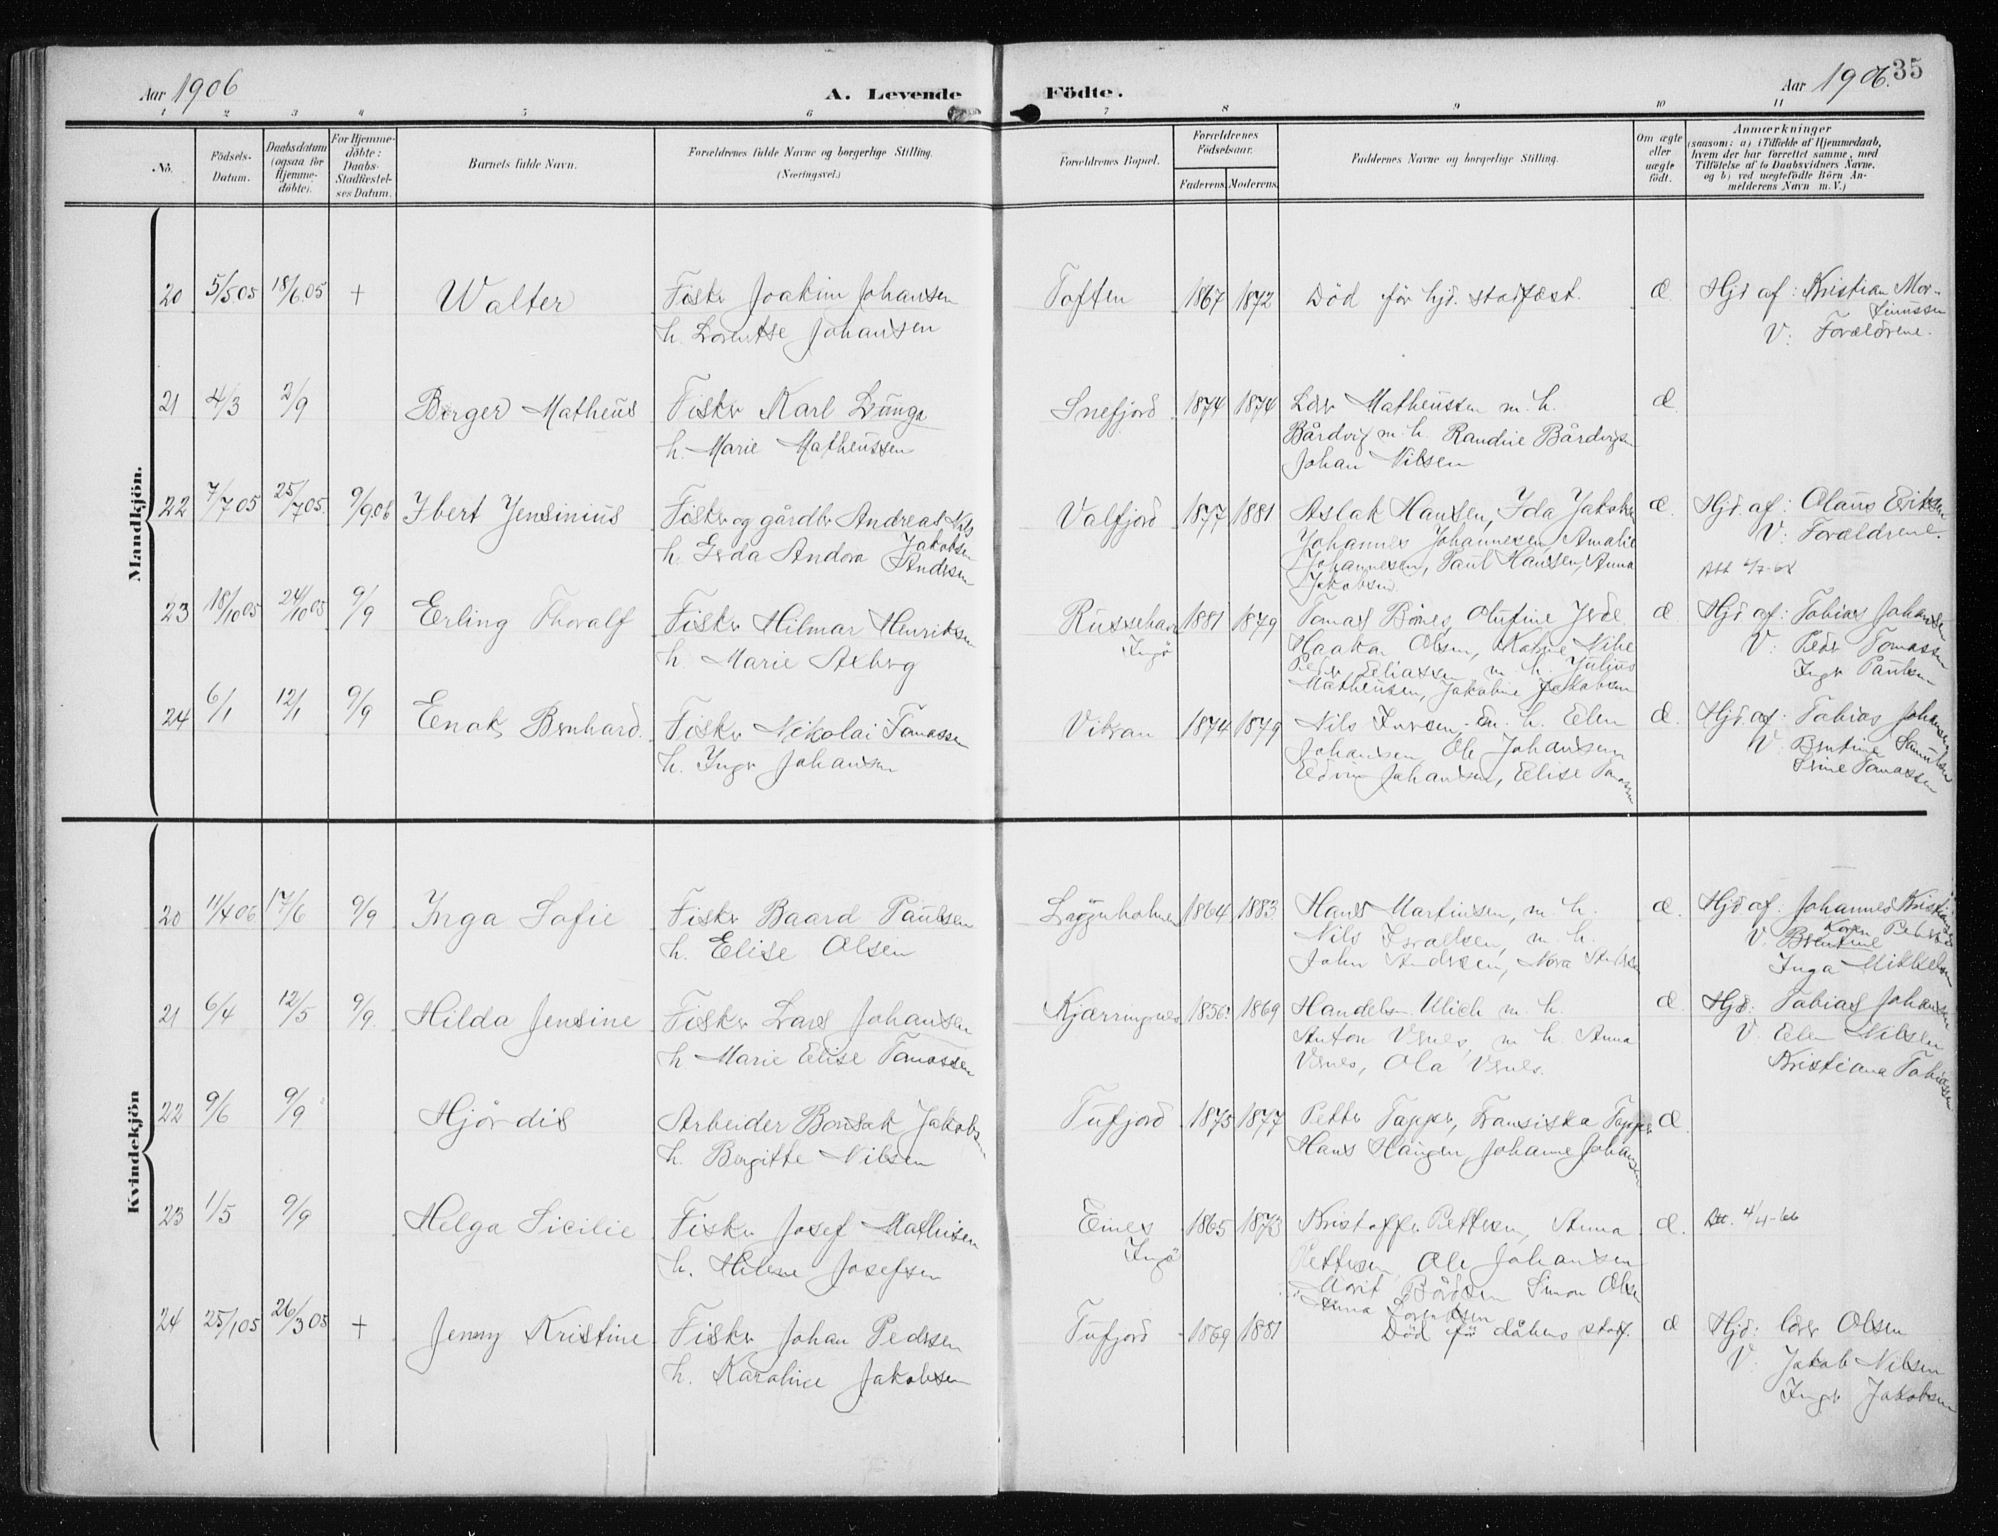 Aar 1906
A. Levende
Födte.
Aar 1906.
35
1 2 3 4 5 6 7 8 9 10 11
No.
Födsels-
Datum.
Daabsdatum
(ogsaa for
Hjemme-
döbte).
For Hjemme-
döbte:
Daabs-
Stadfæstel-
ses Datum.
Barnets fulde Navn.
Forældrenes fulde Navne og borgerlige Stilling.
(Næringsvei.)
Forældrenes Bopæl.
Forældrenes
Födselsaar.
Faderens. Moderens.
Faddernes Navne og borgerlige Stilling.
Om ægte
eller
uægte
födt.
Anmærkninger
(saasom: a) i Tilfælde af Hjemmedaab,
hvem der har forrettet samme, med
Tilföielse af to Daabsvidners Navne,
og b) ved uægtefödte Börn An-
melderens Navn m. V.)
Mandkjön.
20 5/5 05 18/6 05 + Walter Fisker Joakim Johansen Toften 1867 1872 Död för hjd. stadfæst. Æ Hjd af: Kristian Mor-
tinussen
h. Lorentse Johansen V: Forældrene.
21 4/3 2/9 Berger Matheus Fisker Karl Lunga Snefjord 1874 1874 Matheussen m. h. Æ
h. Marie Matheussen Bårdvig m. h. Randine Bårdvigsen
Johan Nilsen
22 7/7 05 25/7 05. 9/9 06 Ibert Jensinius Fisker og gårdbr Andreas Nils Valfjord 1877 1881 Aslak Hansen, Ida Jakobsen Æ. Hjd. af: Olaus Eriksen
Jakobsen
h. Andora Andersen Johannes Johannesen, Amalie V: Forældrene.
Johannesen, Paul Hansen, Anna
Jakobsen
23 18/10 05 24/10 05 9/9 Erling Thoralf Fisker Hilmar Henriksen Russehavn 1881 1879 Tomas Olufine Æ Hjd af: Tobias Johansen
Ingö
h. Marie Axberg Haakon Olsen, V: Peder Tomassen
Peder Eliassen m. h. Julius Inger Paulsen
Matheusen, Jakobine Jakobsen
24 6/1 12/1 9/9 Enok Bernhard. Fisker Nikolai Tomassen Vikran 1874 1879 Nils m. h. Elen Æ. Hjd. af: Tobias Johansen
h. Inger Johansen Johansen, Ole Johansen V: Berntine Samuelsen
Edvin Johansen, Elise Tomassen Tomassen
Kvindekjön
20 11/4 06 17/6 9/9 Inga Sofie Fisker Baard Paulsen 1864 1883 Hans Martinsen, m. h. Æ. Hjd af: Johannes Kristiansen
h. Elise Olsen Nils Israelsen, m. h. V.
John Andersen, Nora Inga Mikkelsen
21 6/4 12/5 9/9. Hilda Jensine Fisker Lars Johansen Kjærringnes 1856 1869 Handelsm. Ulich m. h. Æ Hjd: Tobias Johansen
h. Marie Elise Tomassen Anton m. h. Anna V. Elen Nilsen
Ola Kristiana Tobiassen
22 9/6 9/9 Hjördis Arbeider Jakobsen Tufjord 1875 1877 Petter Tapper, Fransiska Tapper Æ.
h. Bergitte Nilsen Hans Johanne Johansen
23 1/5 9/9 Helga Sicilie Fisker Josef Mathisen Eines 1865 1873 Kristoffer Pettersen, Anna Æ. Att. 4/4-66
Ingö
h. Josefsen Pettersen Ole Johansen
Marit Simon Olsen
Anna
24 25/1 05 26/3 05 + Jenny Kristine Fisker Johan Pedersen Tufjord 1869 1881 Död för dåbens stadf. Æ Hjd: lærer Olsen
h. Karoline Jakobsen V: Jakob Nilsen
Inger Jakobsen